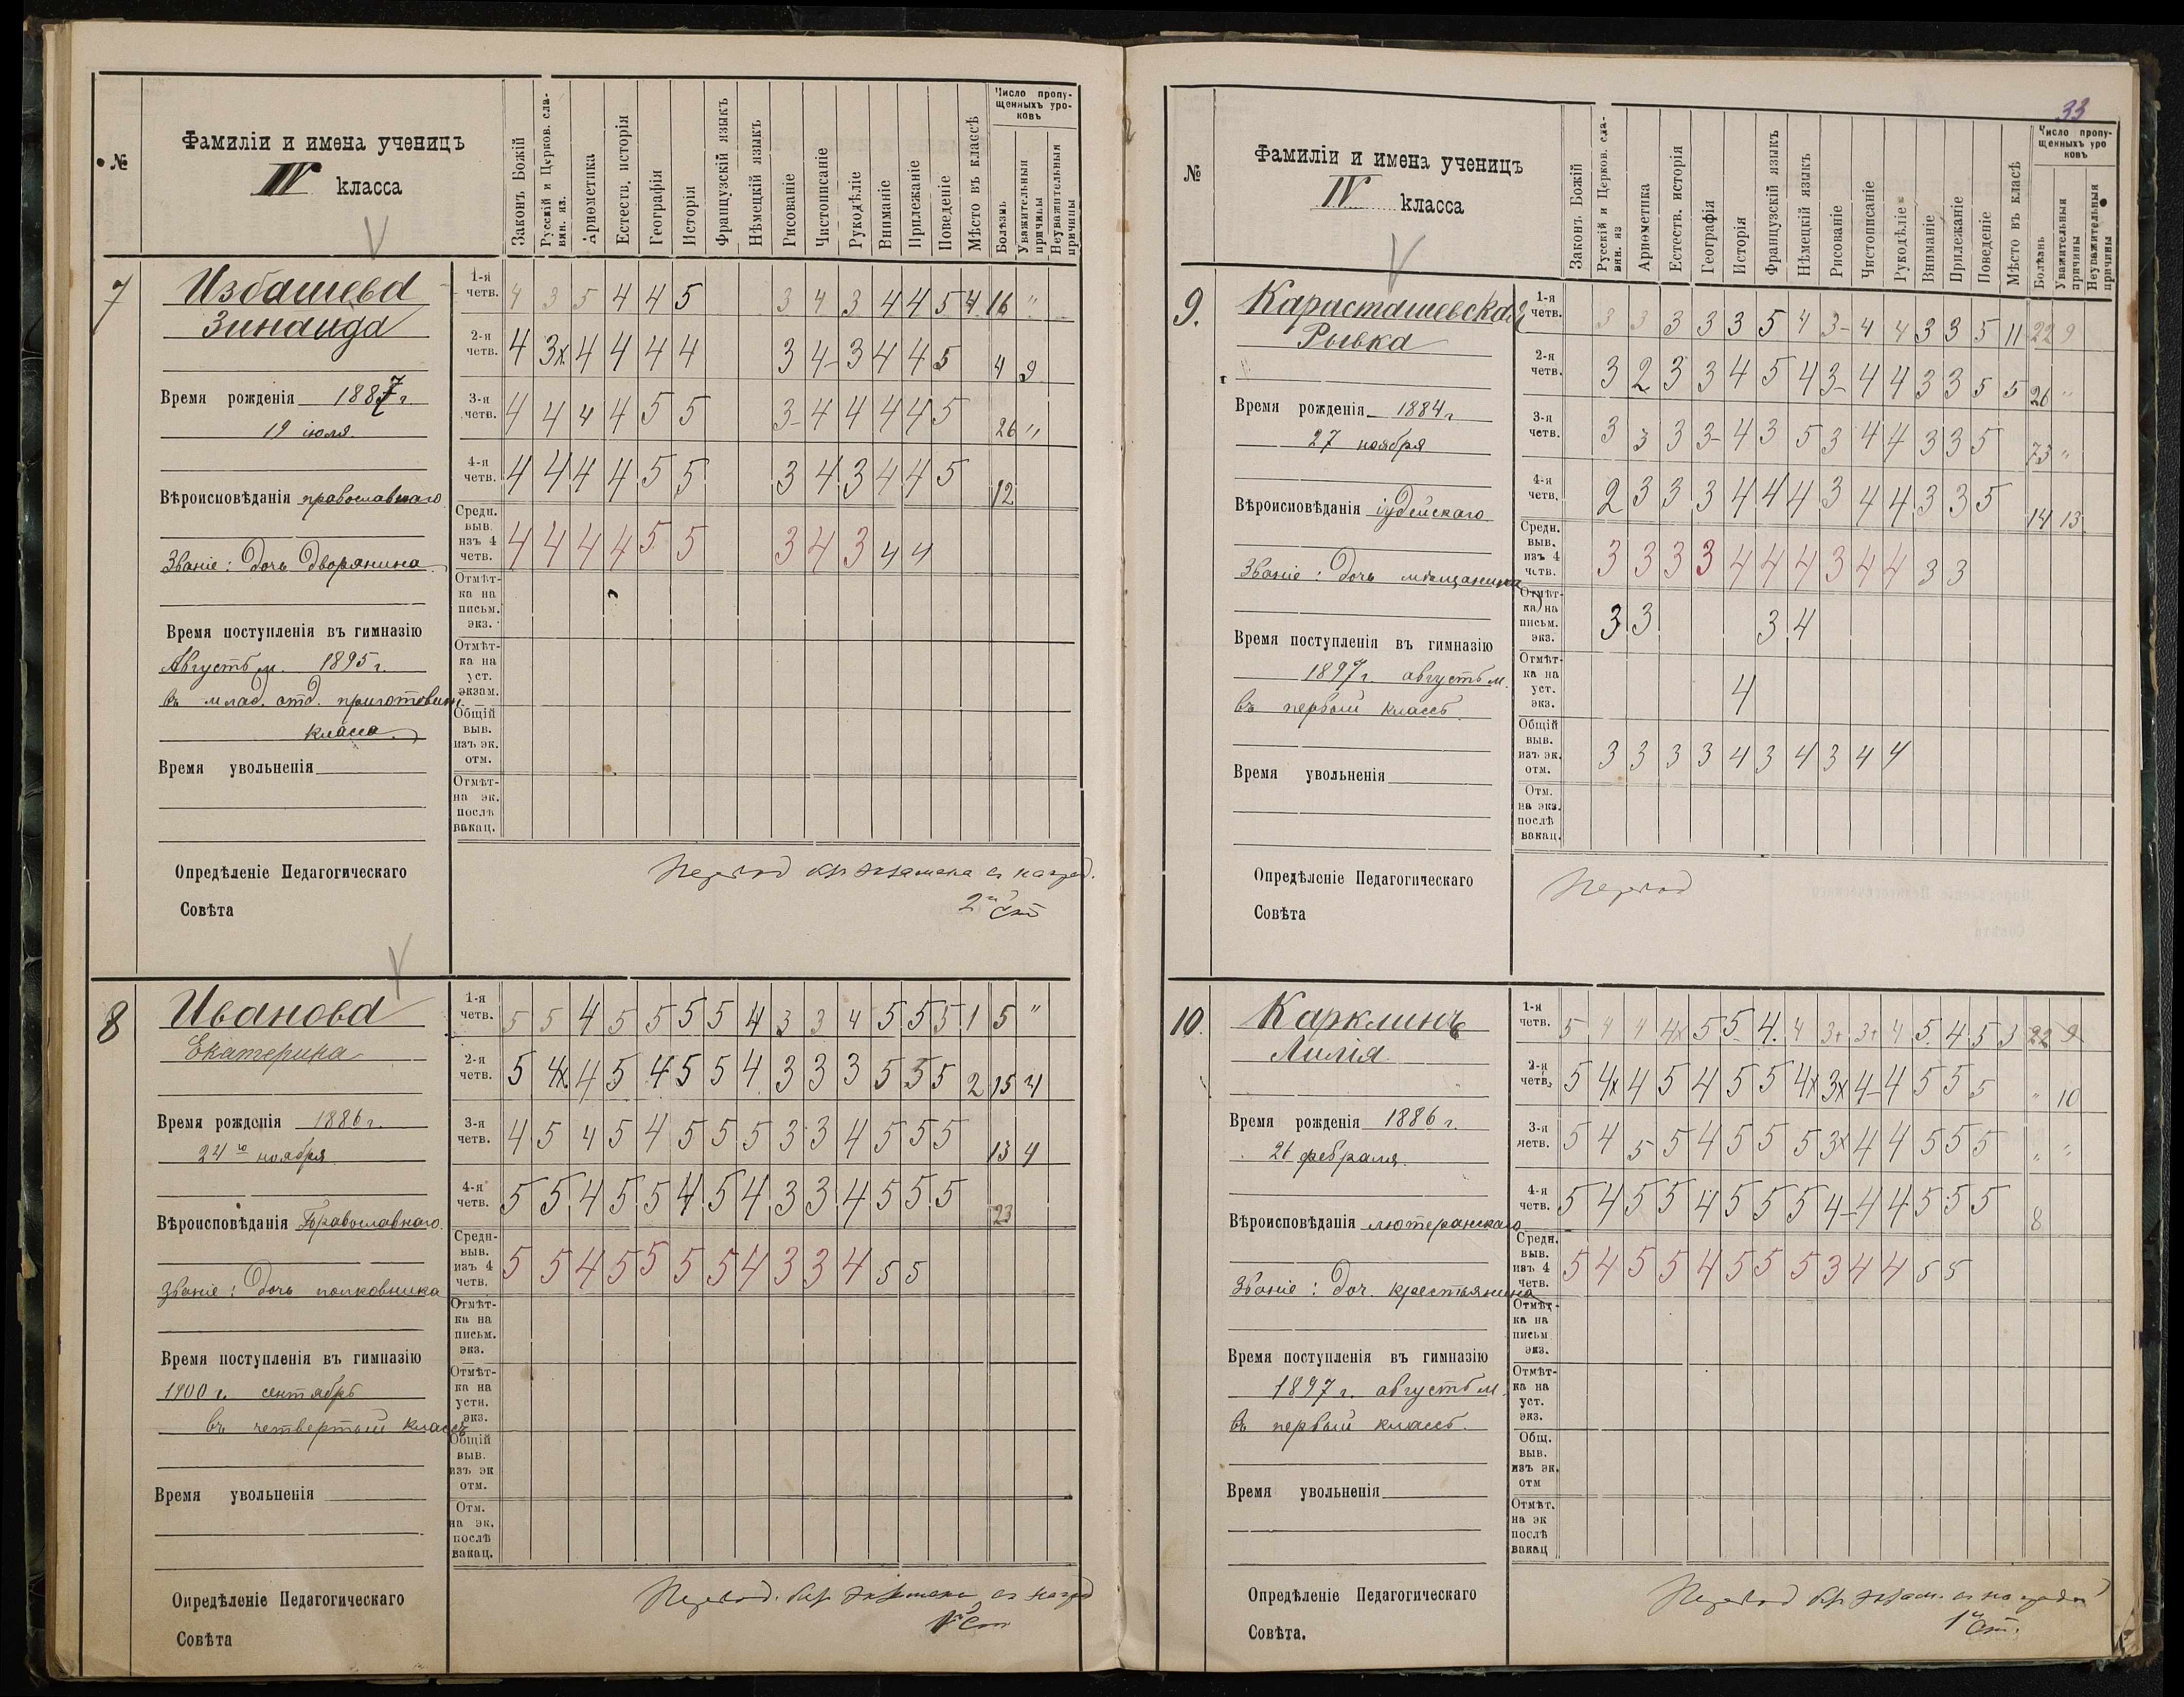 №
Фамиліи и имена ученицъ
IV класса
Законъ Божій
Русскій и Церков. сла-
вян. яз.
Ариѳметика
Естеств. исторія
Географія
Исторія
Французскій языкъ
Нѣмецкій языкъ
Рисованіе
Чистописаніе
Рукодѣліе
Вниманіе
Прилежаніе
Поведеніе
Мѣсто въ классѣ
Число пропу-
щенныхъ уро-
ковъ
Болѣзнь
Уважительныя
причины
Неуважительныя
причины
7
Избашева
Зинаида
Время рожденія 1887 г
19 іюля
Вѣроисповѣданія православнаго
Званіе: дочь дворянина
Время поступленія въ гимназію
Августѣ м. 1895 г.
въ млад. отд. приготовит
класса
Время увольненія
1-я
четв. 4 3 5 4 4 5 3 4 3 4 4 5 4 16 "
2-я
четв. 4 3х 4 4 4 4 3 4- 3 4 4 5 4 9
3-я
четв. 4 4 4 4 5 5 3- 4 4 4 4 5 26 "
4-я
четв. 4 4 4 4 5 5 3 4 3 4 4 5 12
Средн.
выв.
изъ 4
четв. 4 4 4 4 5 5 3 4 3 4 4
Отмѣт-
ка на
письм.
экз.
Отмѣт-
ка на
уст.
экзам.
Общій
выв.
изъ эк.
отм.
Отмѣт-
на эк.
послѣ
вакац.
Опредѣленіе Педагогическаго
Совѣта
Перевод без экзамена с наград.
2й ст
8
Иванова
Екатерина
Время рожденія 1886 г.
24го ноября
Вѣроисповѣданія Православнаго
Званіе: дочь полковника
Время поступленія въ гимназію
1900 г. сентябрѣ
въ четвертый классъ
Время увольненія
1-я
четв. 5 5 4 5 5 5 5 4 3 3 4 5 5 5 1 5 "
2-я
четв. 5 4х 4 5 4 5 5 4 3 3 3 5 5 5 2 15 4
3-я
четв. 4 5 4 5 4 5 5 5 3 3 4 5 5 5 13 4
4-я
четв. 5 5 4 5 5 4 5 4 3 3 4 5 5 5 23
Средн-
выв.
изъ 4
четв. 5 5 4 5 5 5 5 4 3 3 4 5 5
Отмѣт-
ка на
письм.
экз.
Отмѣт-
ка на
устн.
экз.
Общій
выв.
изъ эк
отм.
Отм.
на эк.
послѣ
вакац.
Опредѣленіе Педагогическаго
Совѣта
Перевод. без экзамена с наград
1й ст
33
№
Фамиліи и имена ученицъ
IV класса
Законъ Божій
Русскій и Церков. сла-
вян. яз
Ариѳметика
Естеств. исторія
Географія
Исторія
Французскій языкъ
Нѣмецкій языкъ
Рисованіе
Чистописаніе
Рукодѣліе
Вниманіе
Прилежаніе
Поведеніе
Мѣсто въ класѣ
Число пропу-
щенныхъ уро
ковъ
Болѣзнь
Уважительныя
причины
Неуважительныя
причины
9.
Карасташевская
Рывка
Время рожденія 1884 г
27 ноября
Вѣроисповѣданія іудейскаго
Званіе: дочь мѣщанина
Время поступленія въ гимназію
1897 г. августѣ м.
въ первый классъ
Время увольненія
1-я
четв. 3 3 3 3 3 5 4 3- 4 4 3 3 5 11 22 9
2-я
четв. 3 2 3 3 4 5 4 3- 4 4 3 3 5 5 26 "
3-я
четв. 3 3 3 3- 4 3 5 3 4 4 3 3 5 73 "
4-я
четв. 2 3 3 3 4 4 4 3 4 4 3 3 5 14 13
Средн.
выв.
изъ 4
четв. 3 3 3 3 4 4 4 3 4 4 3 3
Отмѣт-
ка на
письм.
экз. 3 3 3 4
Отмѣт-
ка на
уст.
экз. 4
Общій
выв.
изъ эк.
отм. 3 3 3 3 4 3 4 3 4 4
Отм.
на экз.
послѣ
вакац.
Опредѣленіе Педагогическаго
Совѣта
Перевод
10.
Карклинъ
Лилія
Время рожденія 1886 г.
26 февраля
Вѣроисповѣданія лютеранскаго
Званіе: доч. крестьянина
Время поступленія въ гимназію
1897 г. августѣ м.
въ первый классъ.
Время увольненія
1-я
четв. 5 4 4 4х 5 5 4. 4 3+ 3+ 4 5 4 5 3 22 9
2-я
четв. 5 4х 4 5 4 5 5 4х 3х 4- 4 5 5 5 " 10
3-я
четв. 5 4 5 5 4 5 5 5 3х 4 4 5 5 5 " "
4-я
четв. 5 4 5 5 4 5 5 5 4- 4 4 5 5 5 8
Средн.
выв.
изъ 4
четв. 5 4 5 5 4 5 5 5 3 4 4 5 5
Отмѣт-
ка на
письм
экз.
Отмѣт-
ка на
уст.
экз.
Общ.
выв.
изъ эк.
отм
Отмѣт.
на эк
послѣ
вакац
Опредѣленіе Педагогическаго
Совѣта.
Перевод без экзам. с наградой
1й ст.